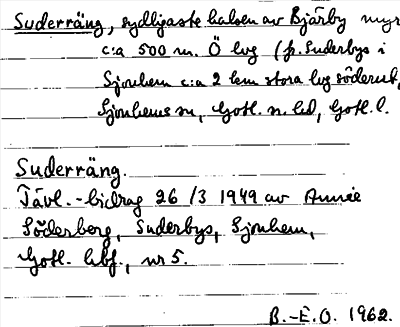 Suderräng, sydligaste halsen av Bjärby myr
c:a 500 m. Ö lvg (fr. Suderbys i
Sjonhem c:a 2 km stora lvg söderut,
Sjonhems sn, Gotl. n. hd, Gotl. l.
Suderräng.
Tävl.-bidrag 26/3 1949 av Annie
Söderberg, Suderbys, Sjonhem,
Gotl. hbf., nr 5.
B.-E.O. 1962.